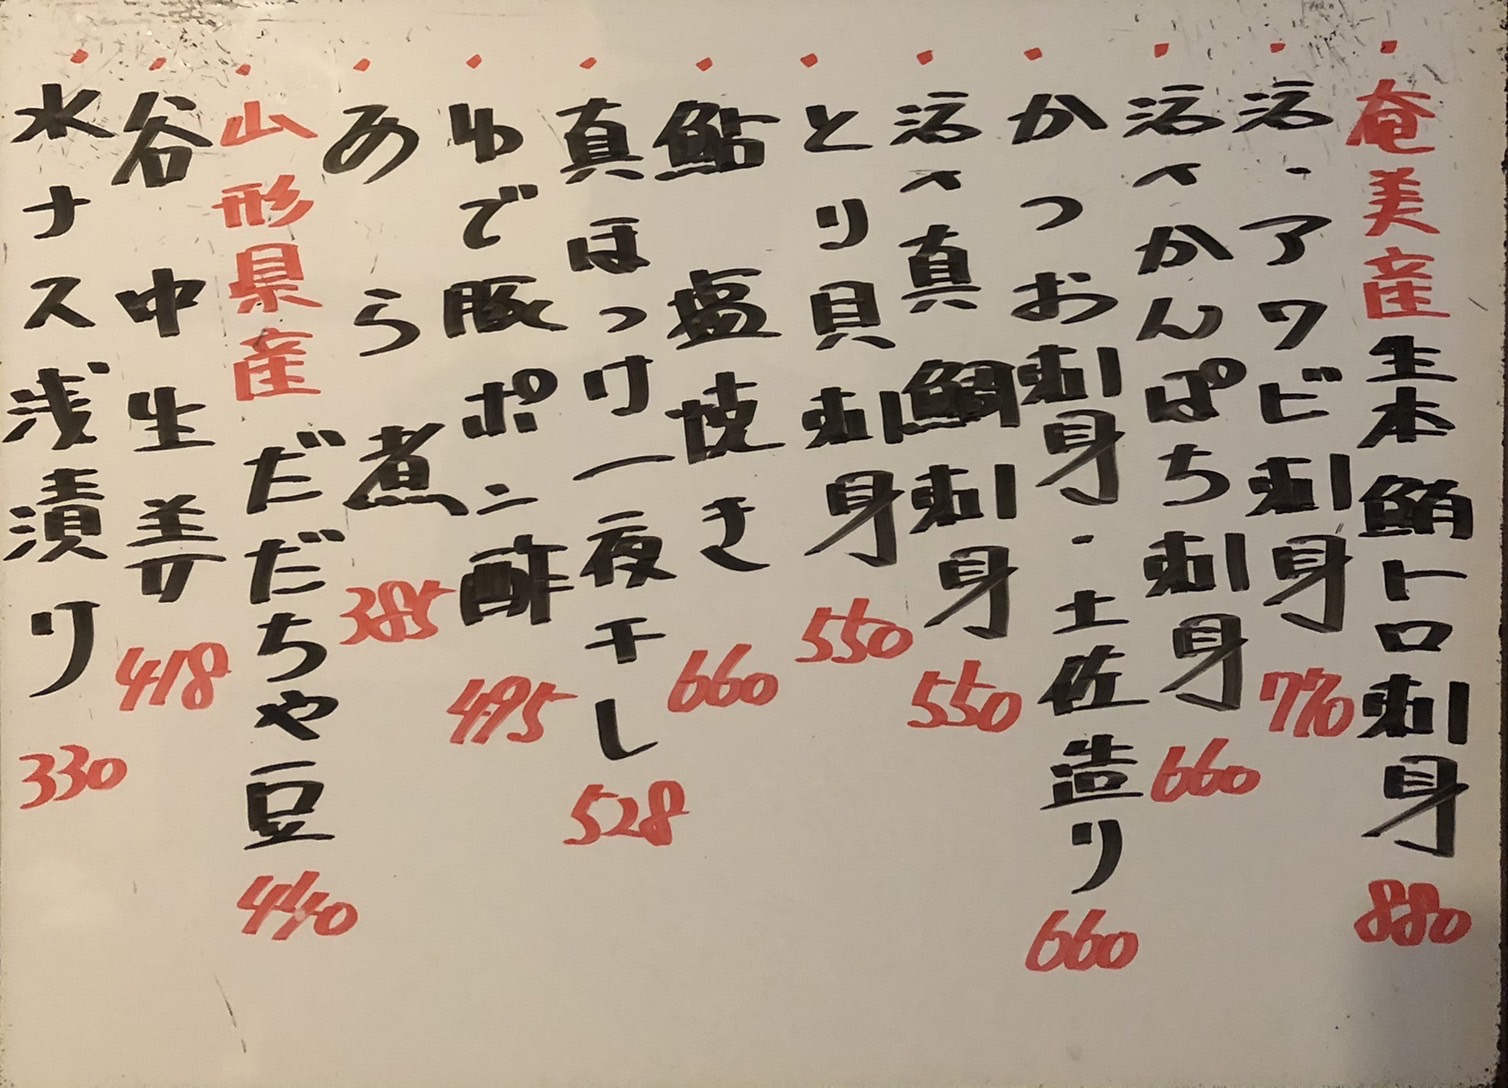 ・奄美産生本鮪トロ刺身 880
・活・アワビ刺身 770
・活〆かんぱち刺身 660
・かつお刺身・土佐造り 660
・活〆真鯛刺身 550
・とり貝刺身 550
・鮎塩焼き 660
・真ほっけ一夜干し 528
・ゆで豚ポン酢 495
・あら煮 385
・山形県産だだちゃ豆 440
・谷中生姜 418
・水ナス浅漬り 330